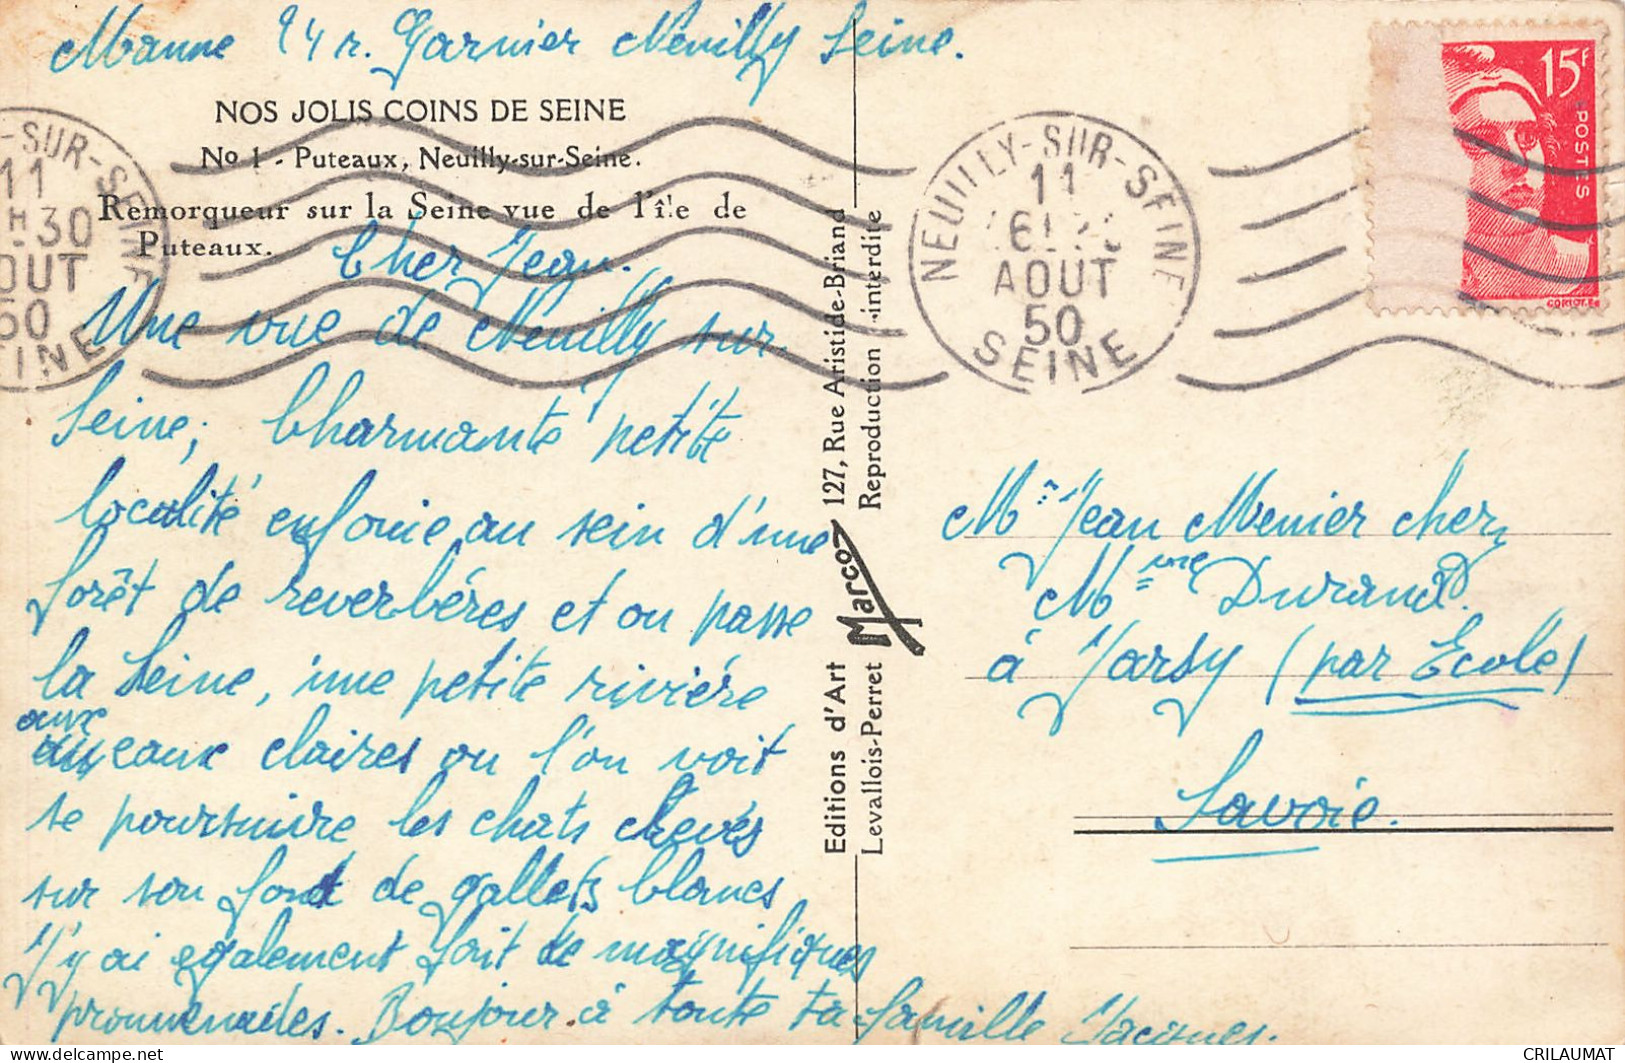 Manne 24 r. Garnier Neuilly Seine.
NOS JOLIS COINS DE SEINE
No 1 - Puteaux, Neuilly-sur-Seine.
Remorqueur sur la Seine vue de l'île de
Puteaux.
Cher Jean.
Une vue de Neuilly sur
Seine; Charmante petite
localité enfouie au sein d'une
forêt de reverbéres et ou passe
la Seine, une petite riviére
aux eaux claires ou l'on voit
se poursuivre les chats crevés
sur son fond de gallets blancs
J'y ai egalement fait de magnifiques
promenades. Bonjour à toute ta famille Jacques.
Editions d'Art Marco 127, Rue Aristide-Briand
Levallois-Perret Reproduction interdite
-SUR-SEINE
11
H 30
OUT
50
SEINE
NEUILLY-SUR-SEINE
11
AOUT
50
SEINE
15F
POSTES
Mr Jean Menier chez
Mme Durand
à Jarsy (par Ecole)
Savoie.
CRILAUMAT